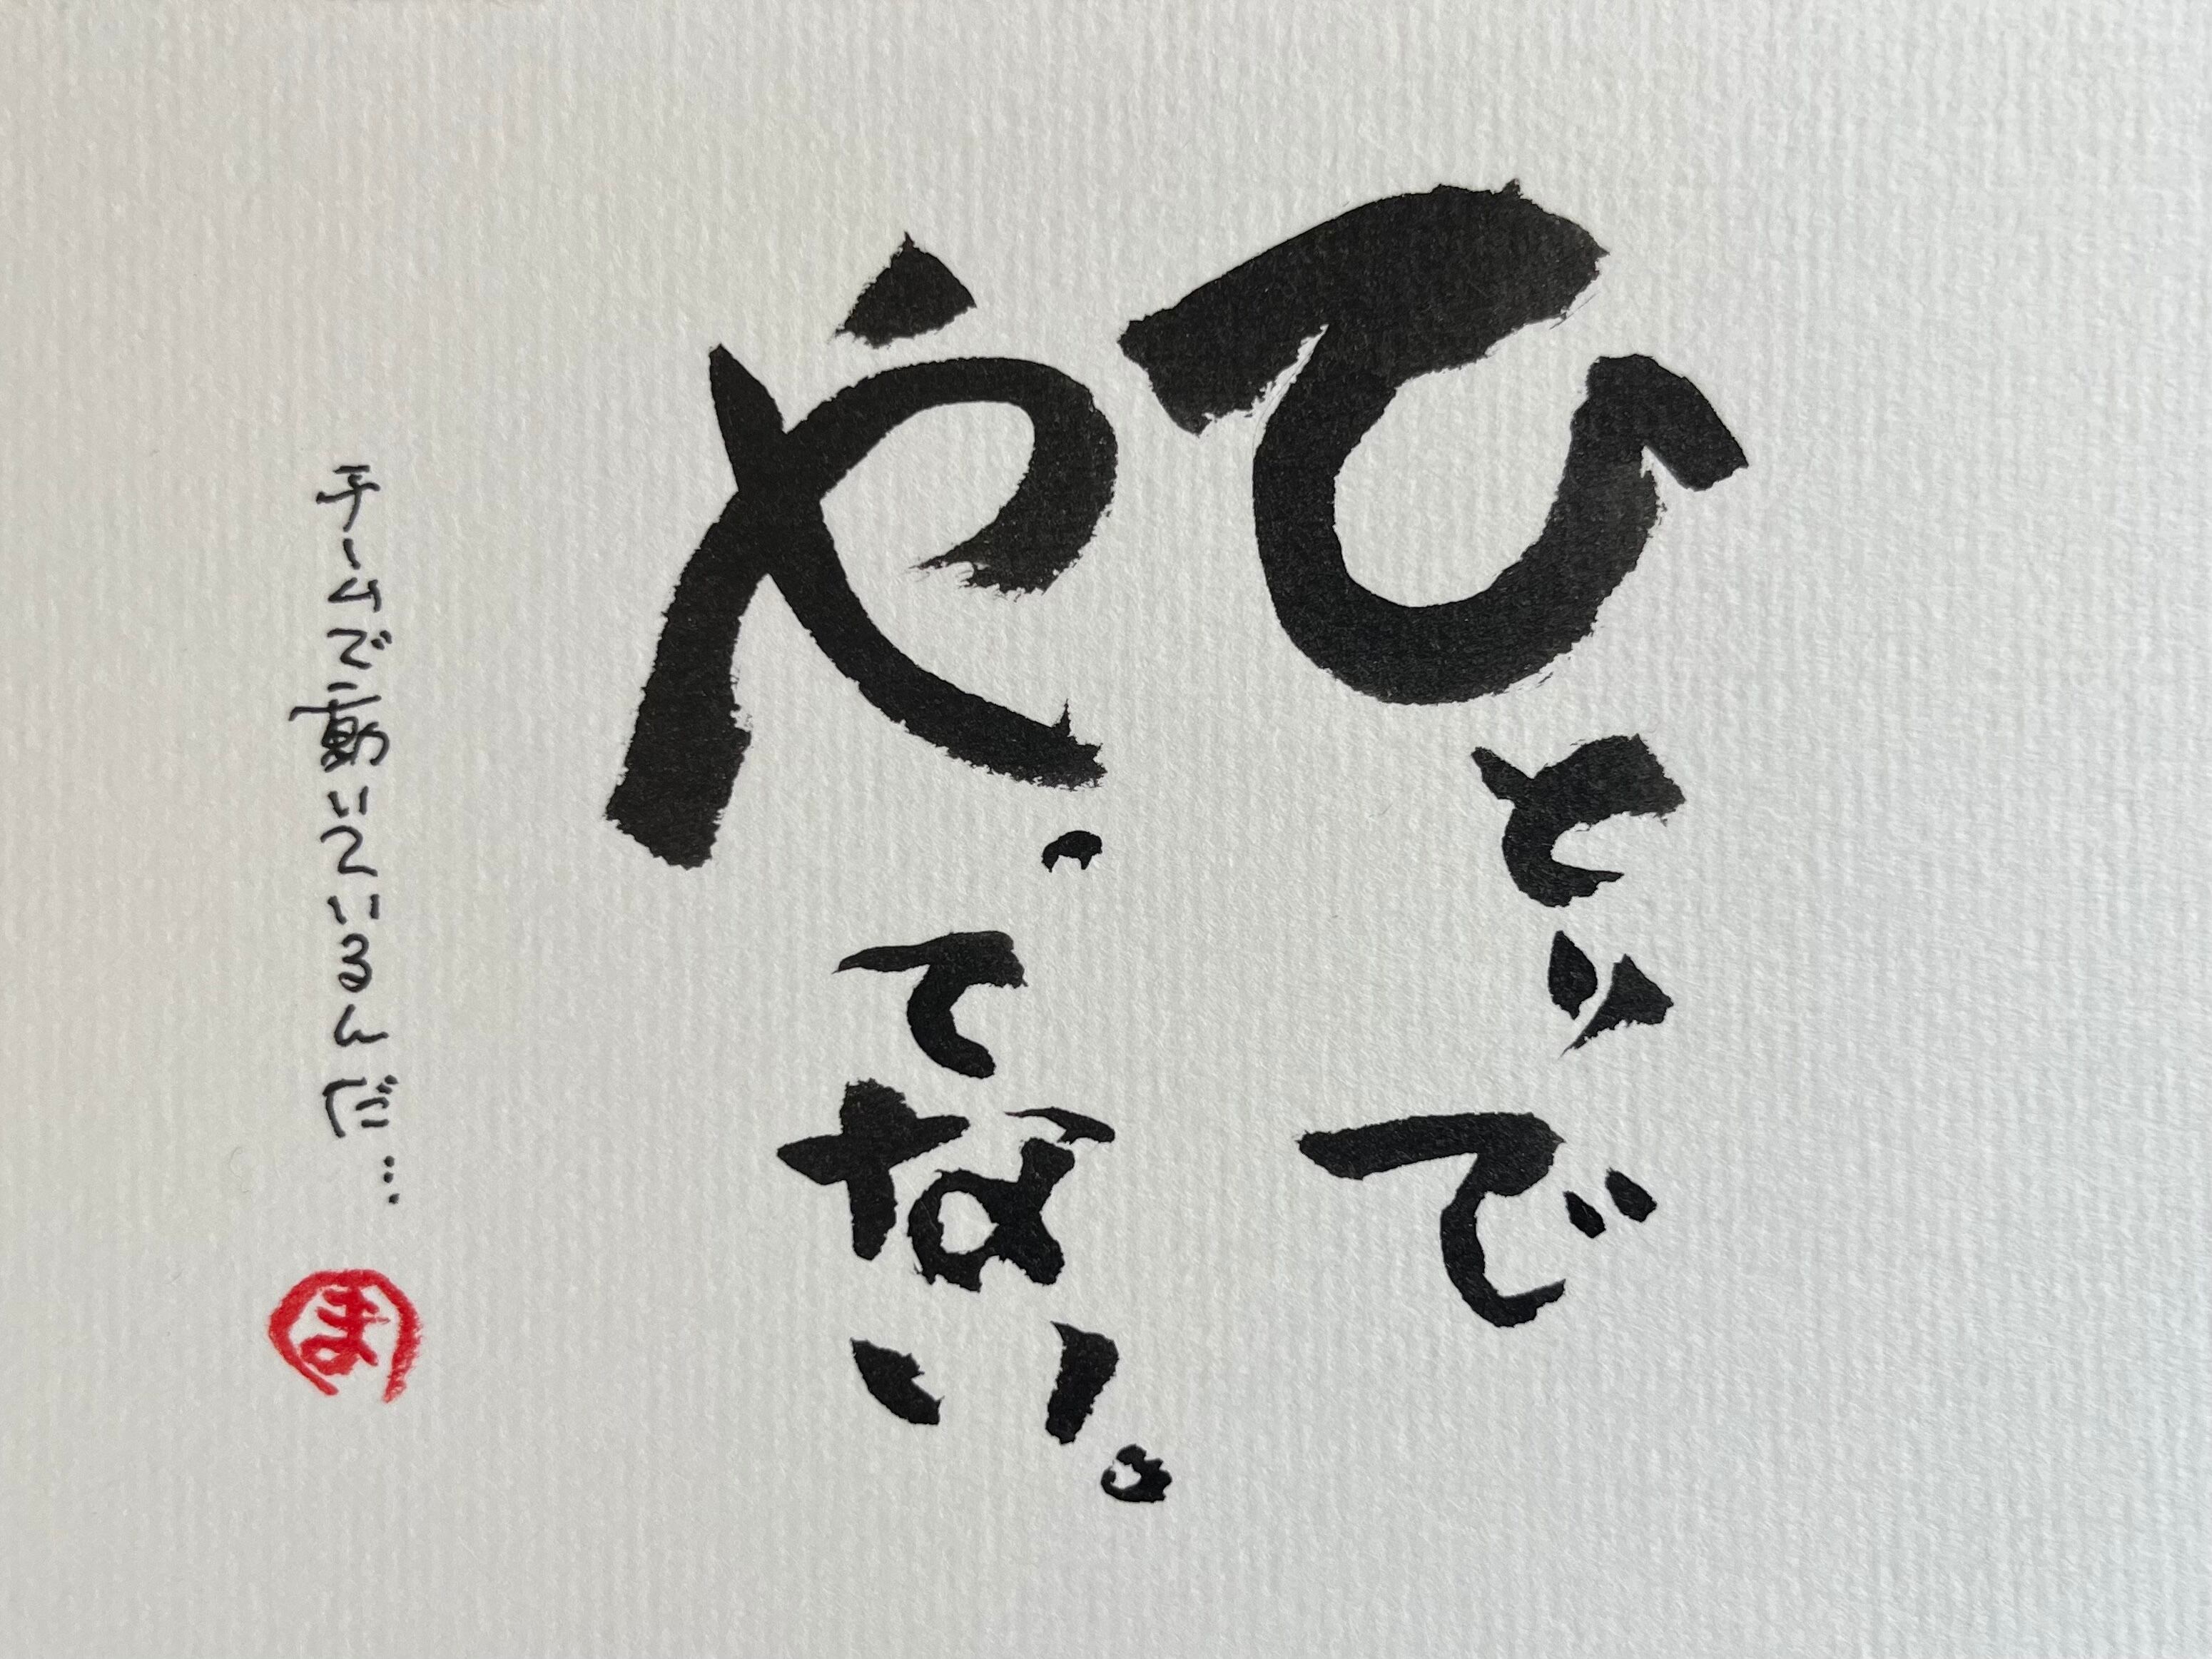 ひとりで
やってない。
チームで働いているんだ…
ま